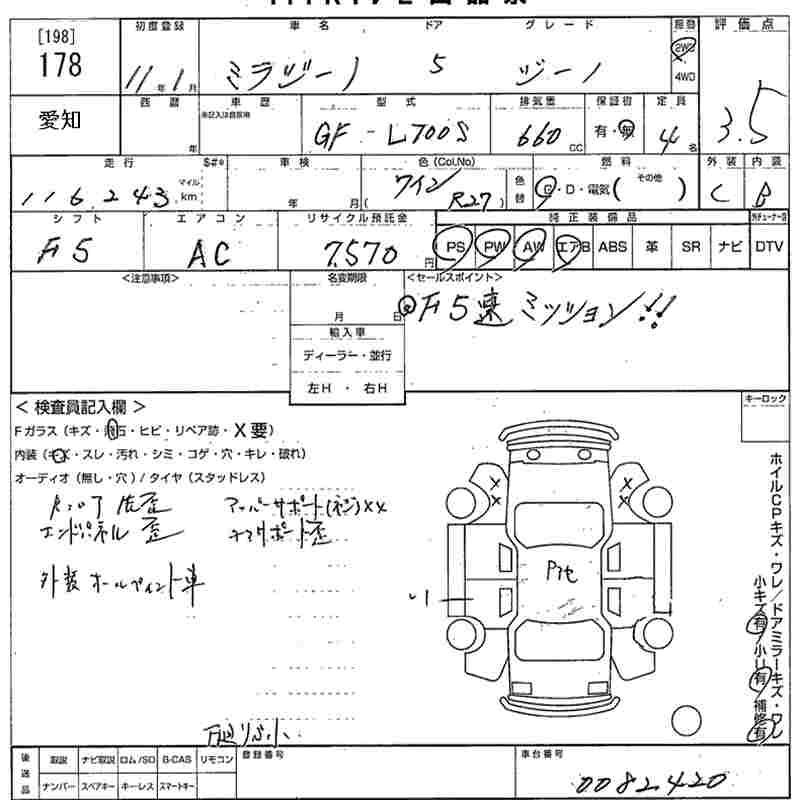 [198]
178
初度登録
11年1月
車名
ミラジーノ
ドア
5
グレード
ジーノ
駆動
2WD
4WD
評価点
3.5
愛知
西暦
年
車歴
未記入は自家用
型式
GF-L700S
排気量
660cc
保証書
有・無
定員
4名
走行
116,243
マイル
km
S#*
車検
年 月
色(Col,No)
ワイン
R27
色替
燃料
G・D・電気( その他 )
外装
C
内装
B
シフト
F5
エアコン
AC
リサイクル預託金
7,570円
純正装備品
PS PW AW エアB ABS 革 SR ナビ DTV
<注意事項>
名変期限
月 日
輸入車
ディーラー・並行
左H・右H
<セールスポイント>
F5速 ミッション!!
<検査員記入欄>
Fガラス(キズ・飛石・ヒビ・リペア跡・X要)
内装(キズ・スレ・汚れ・シミ・コゲ・穴・キレ・破れ)
オーディオ(無し・穴)/タイヤ(スタッドレス)
アッパーサポート(ネジ)XX
エンドパネル 歪
外装 オールペイント車
キーロック
ホイルCPキズ・ワレ/ドアミラーキズ・ワレ
小キズ有/小U有/補修有
後送品
取説 ナビ取説 ロム/SD B-CAS リモコン
ナンバー スペアキー キーレス スマートキー
登録番号
車台番号
0082420